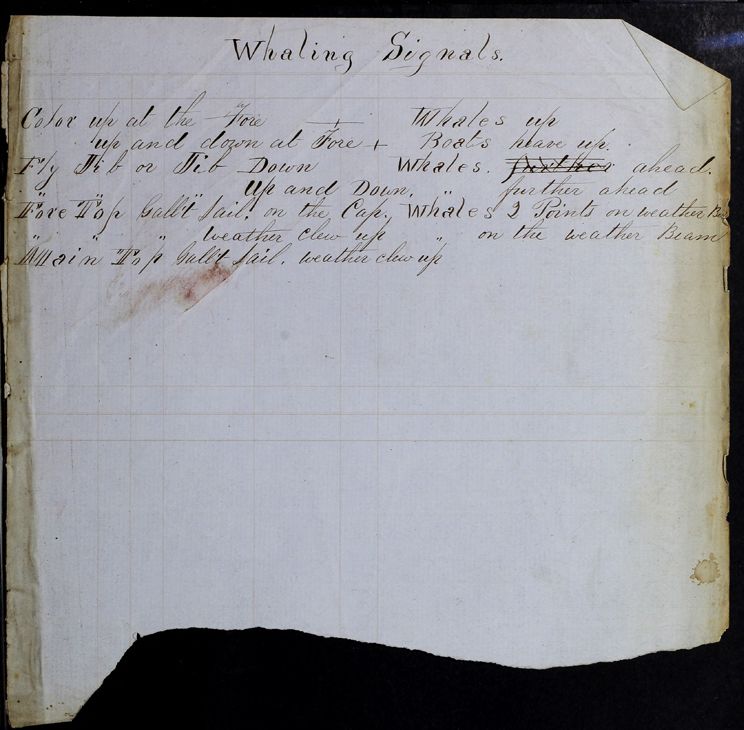 Whaling Signals.
Color up at the Fore + Whales up
up and down at Fore + Boats heave up.
Fly Jib or Jib Down Whales. further ahead.
" " Up and Down. " further ahead
Fore Top Gallt Sail. on the Cap. Whales 2 Points on weather Bow
" " " weather clew up " on the weather Beam
Main Top Gallt Sail. weather clew up